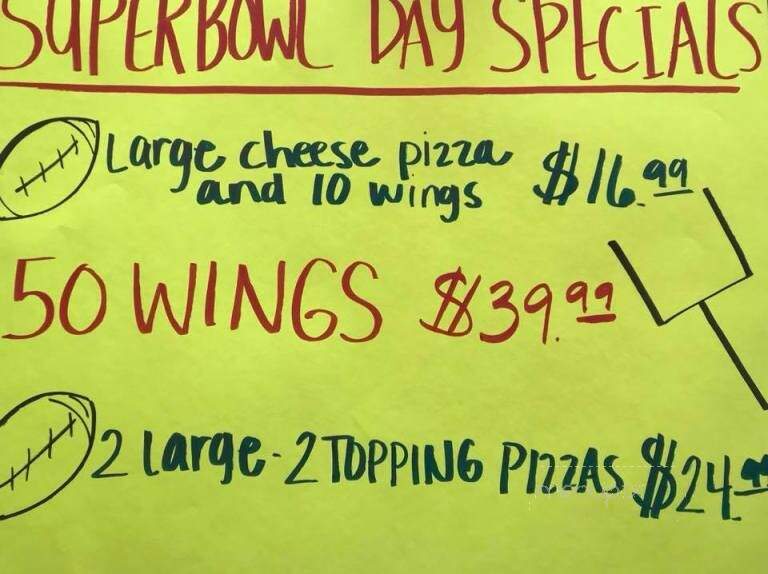 SUPERBOWL DAY SPECIALS
Large cheese pizza $16.99
and 10 wings
50 WINGS $39.99
2 Large - 2 TOPPING PIZZAS $24.99